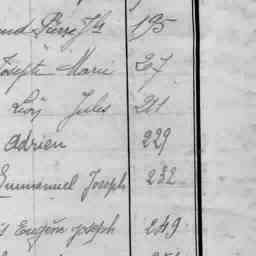 Pierre Jh 195
Joseph Marie 27
Jules 211
Adrien 229
Emmanuel Joseph 232
Eugène joseph 249